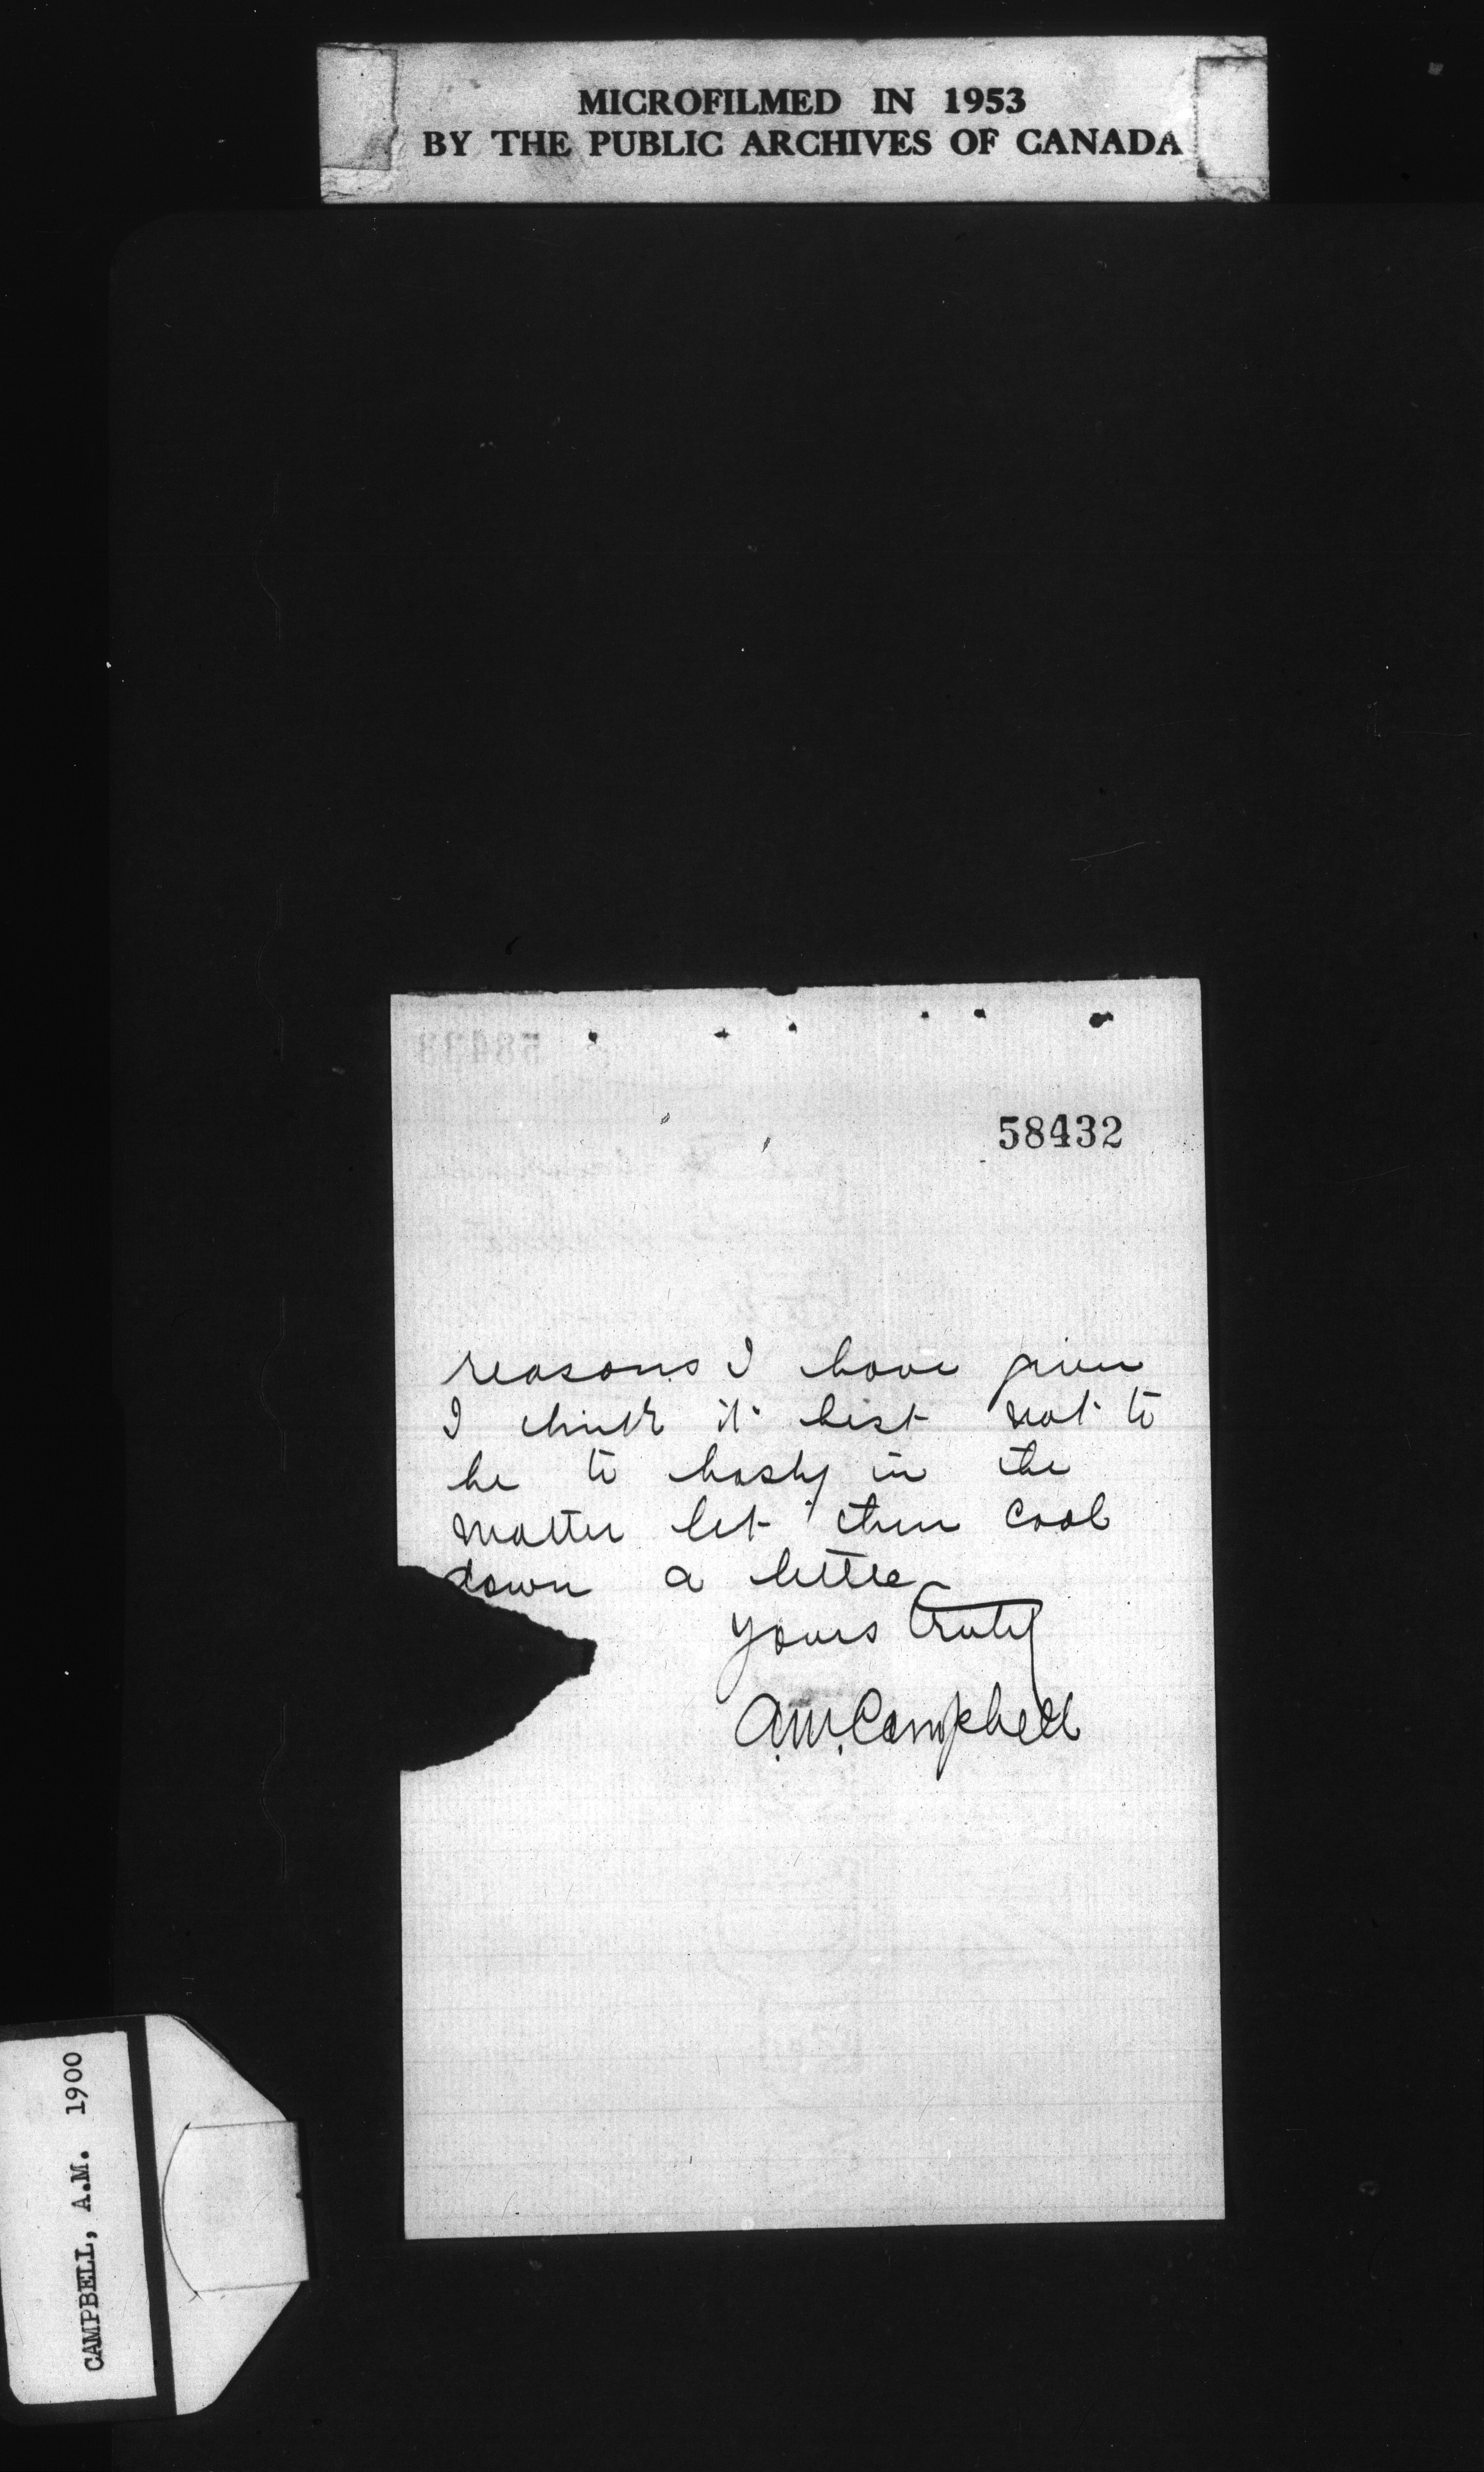 MICROFILMED IN 1953
BY THE PUBLIC ARCHIVES OF CANADA
58432
reasons I have given
I think it best not to
be to hasty in the
matter let them cool
down a little
Yours truly
A.M. Campbell
CAMPBELL, A.M. 1900